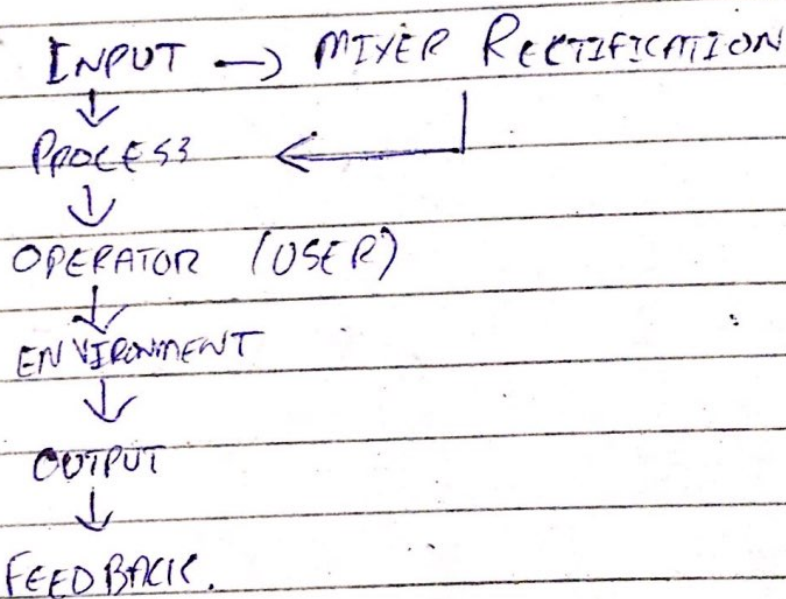 INPUT → MIXER RECTIFICATION
PROCESS
OPERATOR (USER)
ENVIRONMENT
OUTPUT
FEEDBACK.